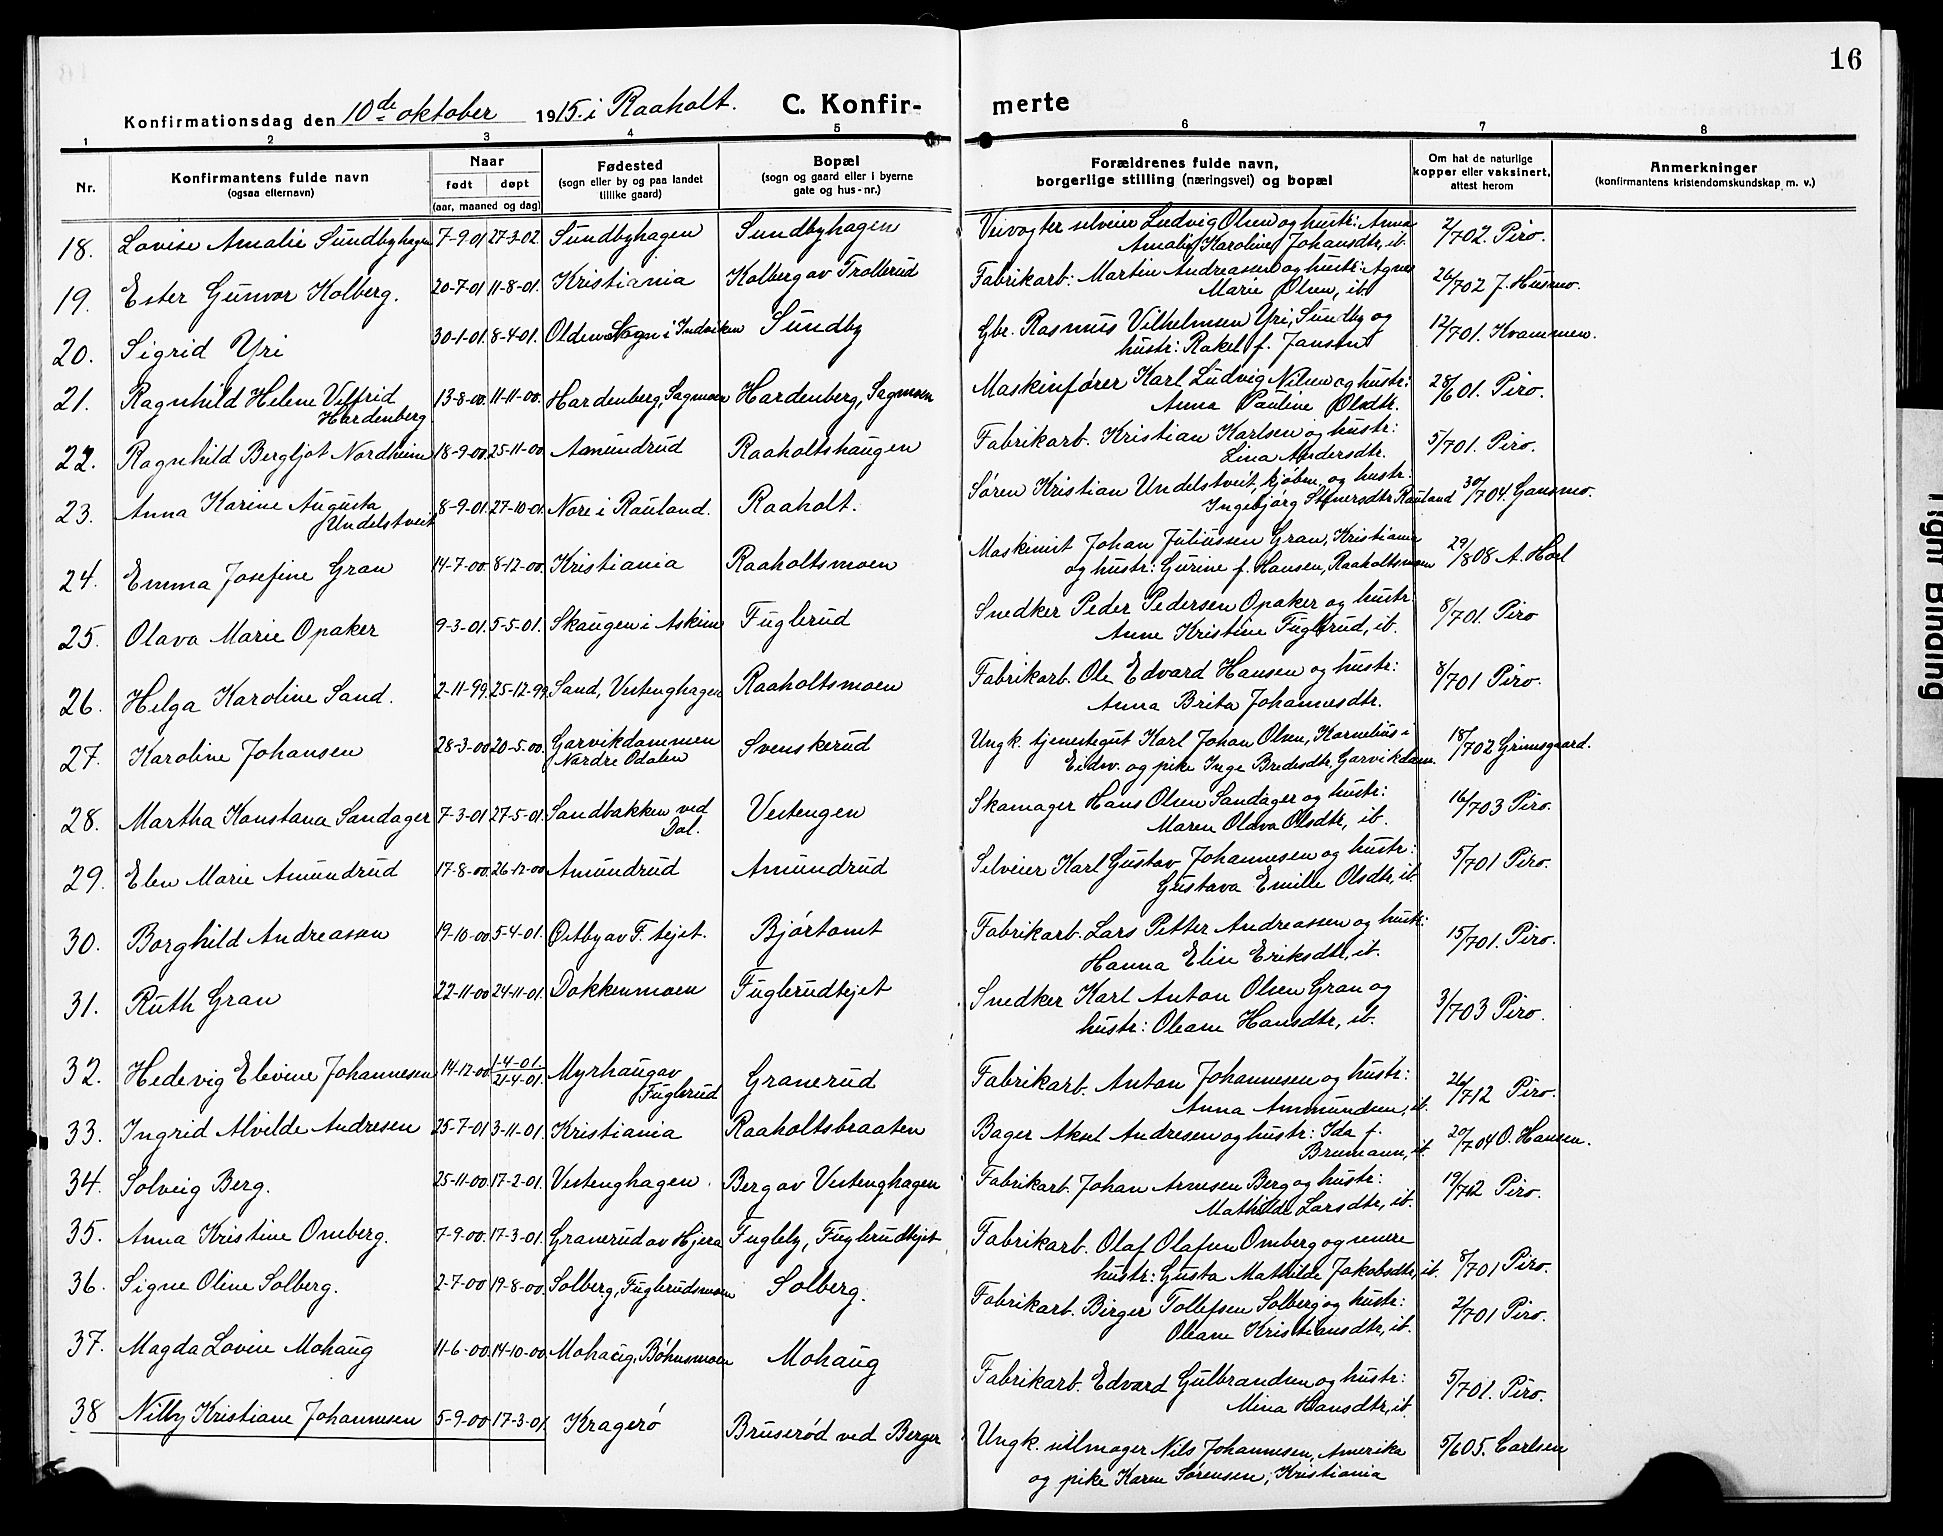 16
Konfirmationsdag den 10de oktober 1915. i Raaholt. C. Konfirmerte
1 2 3 4 5 6 7 8
Nr. Konfirmantens fulde navn (ogsaa efternavn) Naar født døpt (aar, maaned og dag) Fødested (sogn eller by og paa landet tillike gaard) Bopæl (sogn og gaard eller i byerne gate og hus-nr.) Forældrenes fulde navn, borgerlige stilling (næringsvei) og bopæl Om hat de naturlige kopper eller vaksinert, attest herom Anmerkninger (konfirmantens kristendomskundskap m. v.)
18. Lovise Amalie Sundbyhagen 7-9-01 27-3-02 Sundbyhagen Sundbyhagen Veivogter selveier Ludvig Olsen og hustr: Anna
Amalie Karoline Johansdtr, ib. 2/7 02. Piro.
19. Ester Gunvor Kolberg. 20-7-01 11-8-01. Kristiania Kolberg av Trollerud Fabrikarb: Martin Andreassen og hustr: Agnes
Marie Olsen, ib. 26/7 02 J. Husmo.
20. Sigrid Yri 30-1-01. 8-4-01. Olden Sogn i Indviken Sundby Gbr. Rasmus Vilhelmsen Yri, Sundby og
hustr: Rakel f. Jansen 12/7 01. Kvammen.
21. Ragnhild Helene Vilfrid
Hardenberg 13-8-00. 11-11-00. Hardenberg, Sagmoen Hardenberg, Sagmoen Maskinfører Karl Ludvig Nilsen og hustr:
Anna Pauline Olsdtr. 28/6 01. Piro.
22. Ragnhild Bergljot Nordheim 18-9-00. 25-11-00 Amundrud Raaholtshaugen Fabrikarb. Kristian Karlsen og hustr:
Lina Andersdtr. 5/7 01. Piro.
23. Anna Karine Augusta
Undelstveit 8-9-01. 27-10-01 Nore i Rauland. Raaholt. Søren Kristian Undelstveit, kjøbm., og hustr:
Ingebjørg Steinersdtr Rauland 30/7 04. Gansmo.
24. Emma Josefine Gran 14-7-00. 8-12-00. Kristiania Raaholtsmoen Maskinist Johan Juliussen Gran, Kristiania
og hustr: Gurine f. Hansen, Raaholtsmoen 29/8 08 A. Hoel
25. Olava Marie Opaker 9-3-01. 5-5-01. Skaugen i Askim Fuglerud Snedker Peder Pedersen Opaker og hustr
Anne Kristine Fuglerud, ib. 8/7 01. Piro
26. Helga Karoline Sand. 2-11-99. 25-12-99. Sand, Vestenghagen Raaholtsmoen Fabrikarb. Ole Edvard Hansen og hustr:
Anna Brita Johannesdtr. 8/7 01 Piro.
27. Karoline Johansen 28-3-00 20-5-00. Garvikdammen
Nordre Odalen Svenskerud Ungk. tjenestegut Karl Johan Olsen, Kornelius i
Eidsv. og pike Inge Bredesdtr, Garvikdam. 18/7 02 Grimsgaard.
28. Martha Konstana Sandager 7-3-01 27-5-01. Sandbakken ved
Dal. Vestengen Skomager Hans Olsen Sandager og hustr:
Maren Olava Olsdtr, ib. 16/7 03 Piro.
29. Elen Marie Amundrud 17-8-00. 26-12-00 Amundrud Amundrud Selveier Karl Gustav Johannesen og hustr:
Gustava Emilie Olsdtr, ib 5/7 01 Piro.
30. Borghild Andreassen 19-10-00 5-4-01. Østby av F. tejet. Bjørtomt Fabrikarb. Lars Petter Andreassen og hustr:
Hanna Elise Eriksdtr, ib. 15/7 01. Piro.
31. Ruth Gran 22-11-00 24-11-01. Dokkenmoen Fuglerudtejet Snedker Karl Anton Olsen Gran og
hustr: Oleane Hansdtr, ib. 3/7 03 Piro.
32. Hedevig Elevine Johannesen 14-12-00 1-4-01.
21-4-01. Myrhaug av
Fuglerud Granerud Fabrikarb. Anton Johannesen og hustr:
Anna Ammundsen, ib. 26/7 12 Piro.
33. Ingrid Alvilde Andresen 25-7-01 3-11-01. Kristiania Raaholtsbraaten Bager Aksel Andresen og hustr: Ida f.
Brumann, ib. 20/7 04 O. Hansen.
34. Solveig Berg. 25-11-00. 17-2-01. Vestenghagen. Berg av Vestenghagen Fabrikarb. Johan Arnesen Berg og hustr:
Mathilde Larsdtr, ib. 19/7 12 Piro.
35. Anna Kristine Omberg. 7-9-00. 17-3-01. Granerud av Hjera Fugleby, Fuglerudtejet Fabrikarb. Olaf Olafsen Omberg og senere
hustr: Gusta Mathilde Jakobsdtr, ib. 8/7 01 Piro.
36. Signe Oline Solberg. 2-7-00 19-8-00. Solberg, Fuglerudsmoen Solberg. Fabrikarb. Birger Tollefsen Solberg og hustr:
Oleane Kristiansdtr, ib. 2/7 01 Piro.
37. Magda Lovise Mohaug 11-6-00. 14-10-00. Mohaug, Bøhnsmoen Mohaug Fabrikarb. Edvard Gulbrandsen og hustr:
Mina Hansdtr, ib. 5/7 01. Piro.
38 Nilly Kristiane Johannesen 5-9-00 17-3-01. Kragerø Bruserød ved Berger Ungk. Nils Johannesen, Amerika
og pike Karen Sørensen, Kristiania 5/6 05. Carlsen
Tight Binding